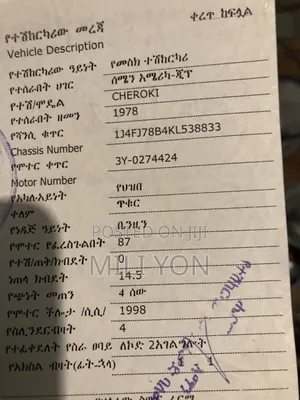 ቀረጥ ከፍሏል
የተሽከርካሪው መረጃ
Vehicle Description
የተሽከርካሪው ዓይነት የመስክ ተሽከርካሪ
የተሰራበት ሀገር ሰሜን አሜሪካ-ጂፕ
የተሽ/ሞዴል CHEROKI
የተሰራበት ዘመን 1978
የሻንሲ ቁጥር 1J4FJ78B4KL538833
Chassis Number
የሞተር ቁጥር 3Y-0274424
Motor Number
የአካሉ-አይነት የህዝበ
ቀለም ጥቁር
የነዳጅ ዓይነት ቤንዚን
POSTED ON JIJI
የሞተር የፈረስጉልበት 87
MILIYON
የተሽ/ጠቅ/ክብደት 0
ነጠላ ክብደት 14.5
የጭነት መጠን 4 ሰው
የሞተር ችሎታ /ሲሲ/ 1998
የሲሊንደርብዛት 4
የተፈቀደለት የስራ ፀባይ ለኮድ 2አገልግሎት
የአክስል ብዛት(ፊት-ኋላ)